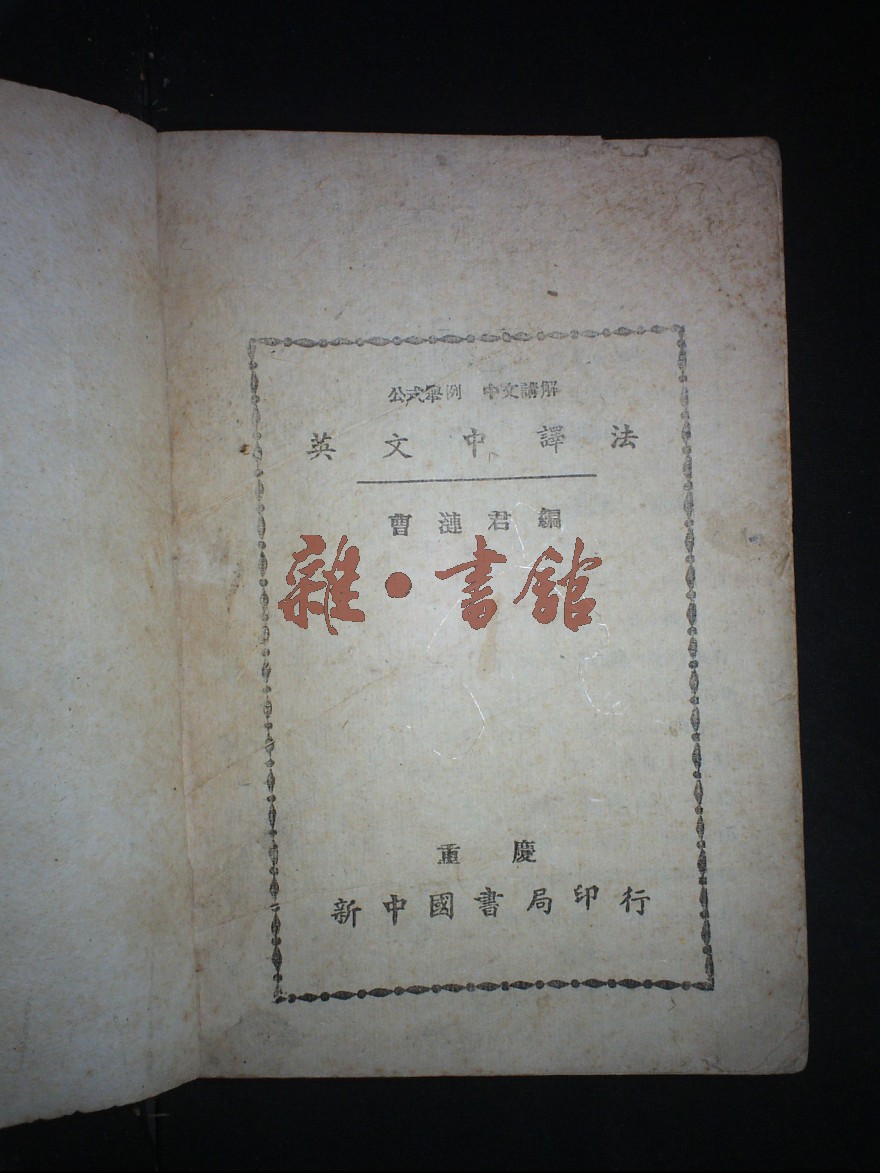 公式舉例　中文講解
英文中譯法
曹漣君編
雜·書館
重慶
新中國書局印行